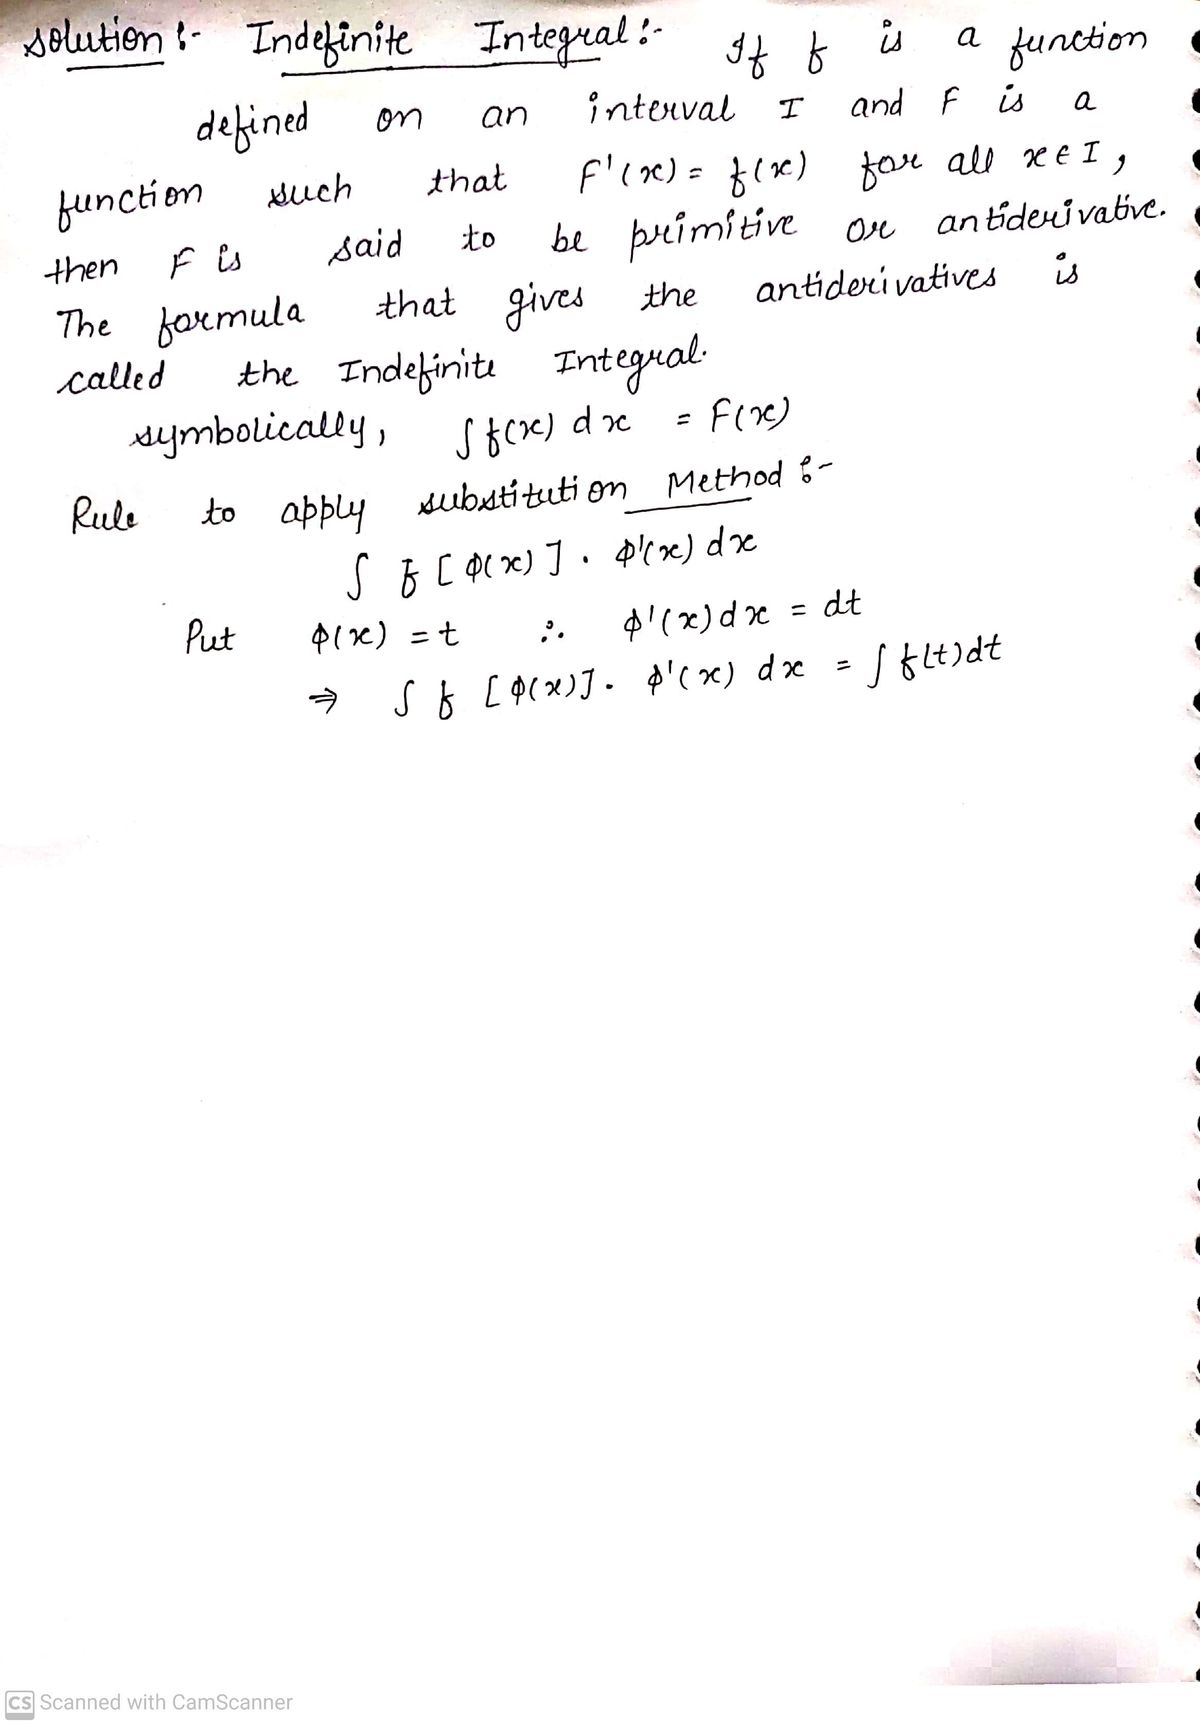 Solution :- Indefinite Integral :- If f is a function
defined on an interval I and F is a
function such that F'(x) = f(x) for all x ∈ I,
then F is said to be primitive or antiderivative.
The formula that gives the antiderivatives is
called the Indefinite Integral.
symbolically, ∫ f(x) dx = F(x)
Rule to apply substitution Method :-
∫ f [ϕ(x)] . ϕ'(x) dx
Put ϕ(x) = t ∴ ϕ'(x) dx = dt
⇒ ∫ f [ϕ(x)] . ϕ'(x) dx = ∫ f(t) dt
CS Scanned with CamScanner